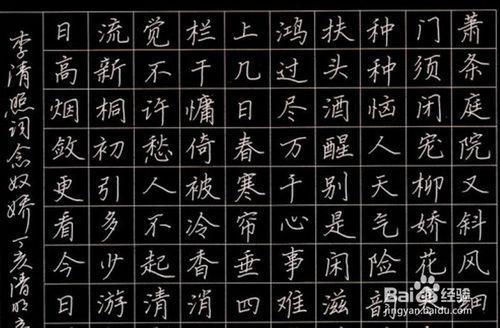 萧条庭院又斜风细
门须闭宠柳娇花
种种恼人天气险
扶头酒醒别是闲滋
鸿过尽万千心事难
上几日春寒帘垂四
栏干慵倚被冷香消
觉不许愁人不起清
流新桐初引多少游
日高烟敛更看今日
李清照词念奴娇 丁亥清明
Bai 经验
jingyan.baidu.com